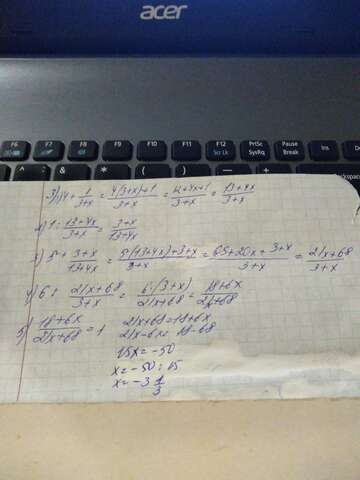 acer
F6 F7 F8 F9 F10 F11 F12 Scr Lk PrtSc SysRq Pause Break Ins
4 + 1/(3+x) = (4(3+x)+1)/(3+x) = (12+4x+1)/(3+x) = (13+4x)/(3+x)
1 : (13+4x)/(3+x) = (3+x)/(13+4x)
5 + (3+x)/(13+4x) = (5(13+4x)+3+x)/(3+x) = (65+20x+3+x)/(3+x) = (21x+68)/(3+x)
6 : (21x+68)/(3+x) = (6·(3+x))/(21x+68) = (18+6x)/(21x+68)
5) (18+6x)/(21x+68) = 1 21x+68=18+6x
21x-6x= 18-68
15x=-50
x=-50:15
x=-3 1/3